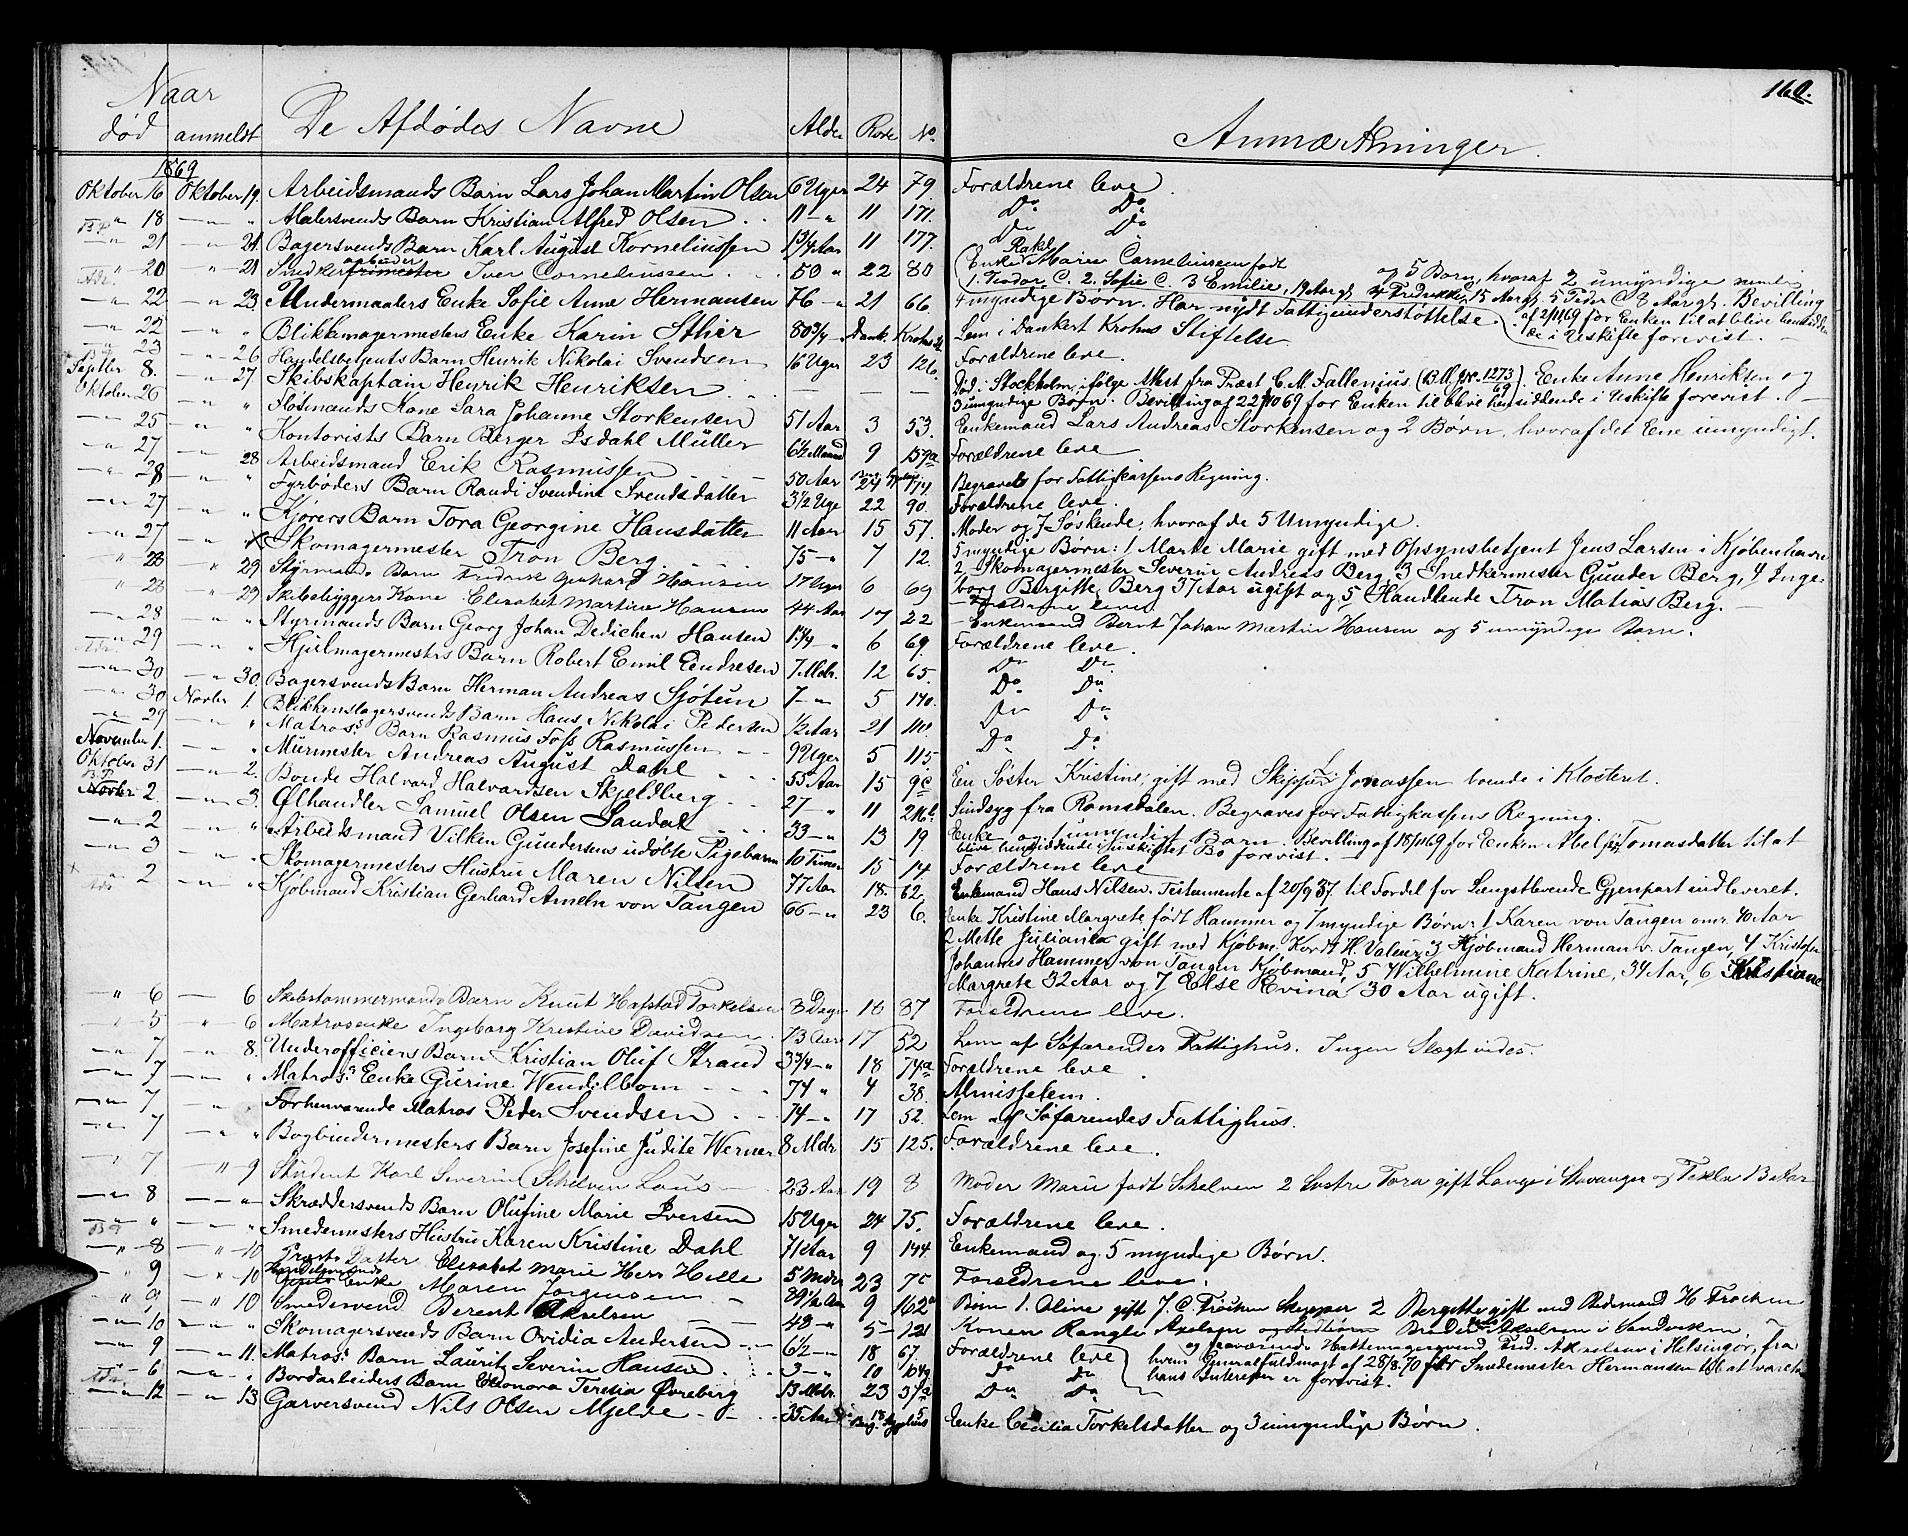 160.
Naar
død anmeldt De Afdødes Navne Alder Rode No. Anmærkninger.
1869
Oktober 16 Oktober 19. Arbeidsmands Barn Lars Johan Martin Olsen 6 Uger 24 79. Forældrene leve.
" 18 — " Malersvends Barn Kristian Alfred Olsen 11 — " 11 171. Do Do
— " 21 — " 21. Bagersvends Barn Karl August Korneliussen 1 3/4 Aar 11 177. Do Do
" 20 " 21 Snedker arbeider Iver Corneliussen 50 " 22 80 Enke Rakel Marie Corneliussen født og 5 Børn, hvoraf 2 umyndige nemlig
1. Teodor C. 2. Sofie C. 3 Emilie, 19 Aar gl. 4 Fredrikke, 15 Aar gl. 5 Peder C 8 Aar gl. Bevilling
— " 22 — " 23. Undermaalers Enke Sofie Anne Hermansen 76 — " 21 66. 4 myndige Børn. Har nydt Fattigunderstøttelse. af 2/11 69 for Enken til at blive hensidden
de i Uskifte forevist. —
— " 22 — " " Blikkemagermesters Enke Karin Sthir 80 3/4 — " Dank. Krohns St. Lem i Dankert Krohns Stiftelse
— " 23 — " 26 Handelsbetjents Barn Henrik Nikolai Svendsen 16 Uger 23 126. Forældrene leve.
Septbr 8. — " 27 Skibskaptain Henrik Henriksen — — — Død i Stockholm ifølge Attest fra Præst C. M. Fallenius. (B.M. No. 1273/69). Enke Anne Henriksen og
3 umyndige Børn. Bevilling af 22/10 69 for Enken til at blive hensiddende i Uskifte forevist. —
Oktober 26 — " " Flotmands Kone Sara Johanne Storkensen 51 Aar 3 53. Enkemand Lars Andreas Storkensen og 2 Børn, hvoraf det Ene umyndigt.
— " 25 — " " Kontorists Barn Berger Isdahl Müller 6 1/2 Maaned 9 157a Forældrene leve.
— " 27 — " 28 Arbeidsmand Erik Rasmussen 50 Aar 24 174. Begraves for Fattigkassens Regning.
— " 28 — " " Fyrbøders Barn Randi Svendine Svendsdatter 3 1/2 Uge 22 90. Forældrene leve.
— " 27 — " " Kjørers Barn Tora Georgine Hansdatter 11 Aar 15 57. Moder og 7 Søskende, hvoraf de 5 Umyndige.
— " 27 — " Skomagermester Tron Berg. 75 — " 7 12. 5 myndige Børn: 1 Marte Marie gift med Opsynsbetjent Jens Larsen i Kjøbenhavn
2 Skomagermester Severin Andreas Berg, 3 Snedkermester Gunder Berg, 4 Inge-
borg Birgitte Berg 37 Aar ugift og 5 Handlende Tron Matias Berg. —
" 28 " 29 Styrmands Barn Fredrik Gerhard Hansen 17 Uger 6 69 Forældrene leve
" 28 " 29 Skibsbyggers Kone Elisabet Martine Hansen 44 Aar 17 22 Enkemand Bernt Johan Martin Hansen og 5 umyndige Børn.
— " 28 — " " Styrmands Barn Georg Johan Dedichen Hansen 1 3/4 — " 6 69. Forældrene leve.
— " 29 — " " Hjulmagermesters Barn Robert Emil Endresen 7 Mdr. 12 65. Do Do
— " 30 — " 30. Bagersvends Barn Herman Andreas Sjøtun 7 — " 5 140. Do Do
— " 30 Novbr 1. Blikkenslagersvends Barn Hans Nikolai Pedersen 1/2 Aar 21 110. Do Do
— " 29 — " " Matros: Barn Rasmus Foss Rasmussen 9 Uger 5 115. Do Do
November 1. — " " Murmester Andreas August Dahl 55 Aar 15 9c En Søster Kristine, gift med Skipper L. Jonassen boende i Klosteret.
Oktober 31 — " 2. Bonde Halvard Halvardsen Skjeldberg 27 — " 11 Sindsyg fra Romsdalen. Begraves for Fattigkassens Regning.
Novbr 2. — " 3. Ølhandler Samuel Olsen Sandal 33 — " 13 19 Enke og 1 umyndigt Barn. Bevilling af 18/11 69 for Enken Abel Tomasdatter til at
blive hensiddende i uskiftet Bo forevist. —
— " 2 — " " Arbeidsmand Vilken Gundersens udøbte Pigebarn 10 Timer 15 14 Forældrene leve
— " 3 — " " Skomagermesters Hustru Maren Nilsen 77 Aar 18 62. Enkemand Hans Nilsen. Testamente af 20/9 37. til Fordel for Længstlevende Gjenpart indleveret.
— " 2 — " " Kjøbmand Kristian Gerhard Ameln von Tangen 66 — " 23 6. Enke Kristine Margrete født Hammer og 7 myndige Børn: 1 Karen von Tangen omr. 40 Aar
2 Mette Julianka gift med Kjøbm. Kordt H. Valeur, 3 Kjøbmand Herman v. Tangen, 4 Kristofer
Johannes Hammer von Tangen Kjøbmand, 5 Wilhelmine Katrine, 34 Aar, 6 Kristiane
Margrete 32 Aar og 7 Else Revina 30 Aar ugift.
" 6 — 6 Skibstømmermands Barn Knut Hafstad Torkelsen 8 Dage 16 87 Forældrene leve.
" 5 " 6 Matrosenke Ingeborg Kristine Davidsen 73 Aar 17 52 Lem af Søfarendes Fattighus. Ingen Slægt vides.
— " 7 — " 8. Underofficiers Barn Kristian Oluf Strand 3 3/4 — " 18 74a Forældrene leve.
— " 7 — " " Matros: Enke Gurine Wendilbom 74 " 4 38. Almisselem.
— " 7 — " " Forhenværende Matros Peder Svendsen 74 — " 17 52. Lem af Søfarendes Fattighus.
— " 7 — " " Bogbindermesters Barn Josefine Judite Werner 8 Mdr. 15 125. Forældrene leve.
— " 7 — " 9 Student Karl Severin Schelven Lous 23 Aar 19 8 Moder Marie født Schelven 2 Søstre Tora gift Lange i Stavanger og Tekla
— " 8 — " " Skræddersvends Barn Olufine Marie Iversen 15 Uger 24 75. Forældrene leve.
— " " — " " Smedemesters Hustru Karen Kristine Dahl 71 Aar 9 144. Enkemand og 5 myndige Børn.
— " 8 — " 10 Præsts Datter Elisabet Marie Herr Helle 5 Mdr 23 75 Forældrene leve.
" 9 " 10 Handelsmands Enke Maren Jørgensen 89 1/2 Aar 9 162a Børn 1. Oline gift J. C. Frøchen Skipper 2 Bergitte gift med Redemand H Frøchen
" 9 " 10 Smedesvend Berent Akselsen 48 — " 5 — 121 Konen Rangle Axelsen
og fraværende Hattemagersvend Fred. Akselsen i Helsingør, fra
— " 10 — " " Skomagersvends Barn Ovidia Andersen 6 1/2 — " 18 67. Forældrene leve hvem Generalfuldmagt af 28/8. 70 for Smedemester Hermansen til at varetage
— " 9 — " 11. Matros: Barn Laurits Severin Hansen 3 — " 10 Do Do hans Interesser er forevist.
— " 6 — " " Bordarbeiders Barn Eleonora Teresia Øvreberg 13 Mdr. 23 37a Do Do
— " 12 — " 13 Garversvend Nils Olsen Mjelde 35 Aar Enke Cecilia Torkelsdatter og 3 umyndige Børn.